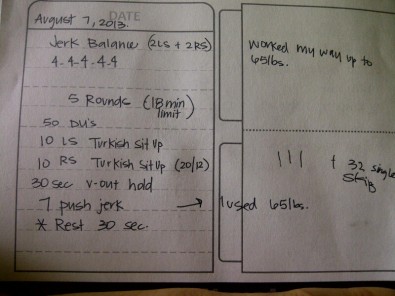 DATE
August 7, 2013.
Jerk Balance (2LS + 2RS)
4-4-4-4-4
5 Rounds (18 min limit)
50 DU's
10 LS Turkish Sit Up
10 RS Turkish Sit Up (20/12)
30 sec v-out hold
7 push jerk →
* Rest 30 sec.
worked my way up to
65lbs.
||| + 32 single
skip
I used 65lbs.